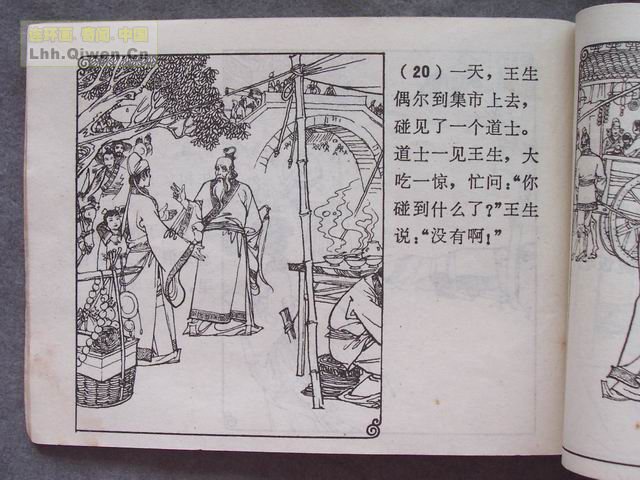 连环画.奇闻.中国
Lhh.Qiwen.Cn
(20)一天,王生
偶尔到集市上去,
碰见了一个道士。
道士一见王生,大
吃一惊,忙问:“你
碰到什么了?”王生
说:“没有啊!”